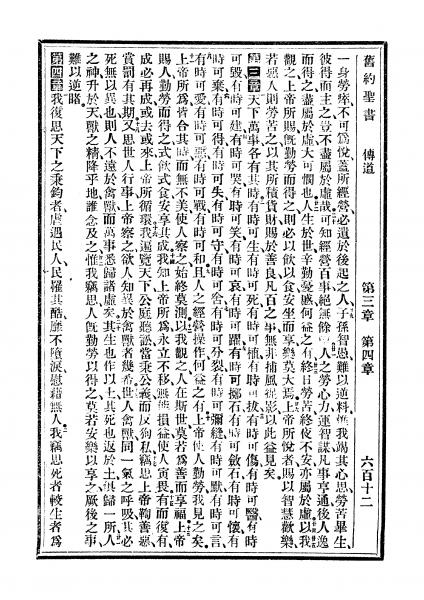 舊約聖書 傳道 第三章 第四章 六百十二
一身勞瘁不可為悅蓋所經營必遺於後起之人子孫智愚難以逆料惟我竭其心思勞苦畢生
彼得而主之豈不盡屬於虛哉可知經營百事絕無餘人之勞心力運智謀凡事亨通後人逸
而得之盡屬於虛大可憫也人生於世辛勤憂慼何益之有終日勞苦終夜不安亦屬於虛以我
觀之上帝所賜旣勤勞而得之則必以飲以食安坐而享樂莫大焉上帝所悅者賜以智慧歡樂
若惡人則勞苦之以其所積貨財賜於善良凡百之事無非捕風捉影以此益見矣
第三章天下萬事各有其時有時可生有時可死有時可植有時可拔有時可傷有時可醫有時
可毀有時可建有時可哭有時可笑有時可哀有時可躍有時可擲石有時可斂石有時可懷有
時可棄有時可得有時可失有時可守有時可舍有時可分裂有時可彌縫有時可默有時可言
有時可愛有時可惡有時可戰有時可和且人之經營操作何益之有上帝使人勤勞我見之矣
上帝所為皆合其時而無不美使人察之始終莫測以我觀之人在斯世莫若為善而享福上帝
賜人勤勞而得之式飲式食安享其成我知上帝所為永立不移無能損益使人寅畏有而復有
成必再成或去或來上帝所循環我遍覽天下公庭聽訟當秉公義而反徇私竊思上帝鞫善惡
賞罰有其期又思世人行事上帝察之欲人知異於禽獸者幾希世人禽獸同一氣之呼吸其必
死無以異也則人不遠於禽獸而萬事悉歸諸虛矣其生也作以土其死也返於土歸一所人
之神升於天獸之精降乎地誰念及之惟我竊思人旣勤勞以得之莫若安樂以享之厥後之事
難以逆睹
第四章我復思天下之秉鈞者虐遇民人民罹其酷靡不隕淚慰藉無人我竊思死者較生者為